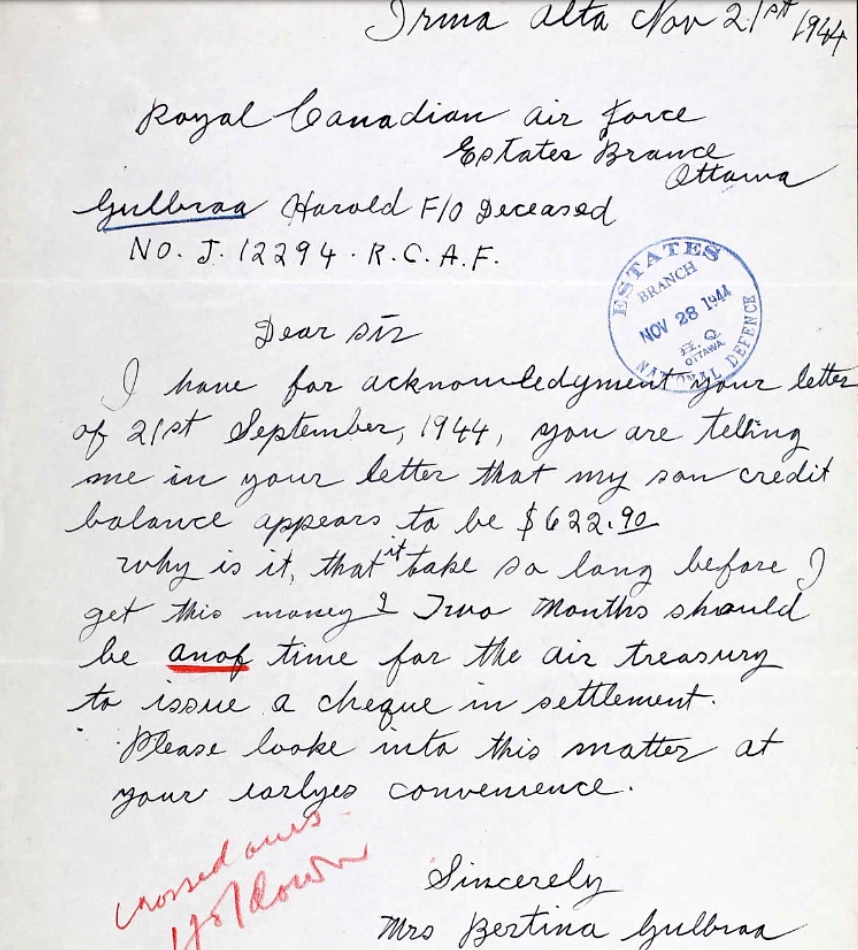 Irma Alta Nov 21st 1944
Royal Canadian air force
Estates Brance
Ottawa
Gulbraa Harold F/O Deceased
NO. J. 12294. R.C.A.F.
ESTATES
BRANCH
NOV 28 1944
H. Q.
OTTAWA
NATIONAL DEFENCE
Dear sir
I have for acknowledgment your letter
of 21st September, 1944, you are telling
me in your letter that my son credit
balance appears to be $622.90
why is it, that it take so long before I
get this money? Two Months should
be anof time for the air treasury
to issue a cheque in settlement.
Please looke into this matter at
your earlyes convenience.
crossed ours
Sincerely
Mrs Bertina Gulbraa